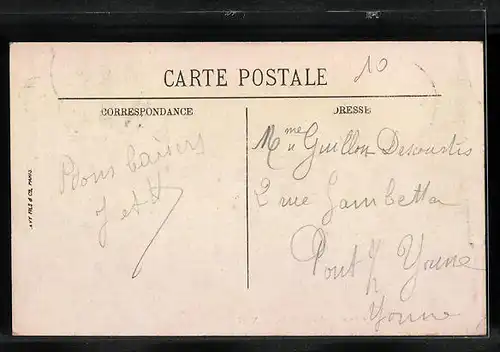 CARTE POSTALE
10
CORRESPONDANCE
Bons baisers
J et
DRESSE
Mme Guillon Descourtis
2 rue Gambetta
Pont s/ Yonne
Yonne